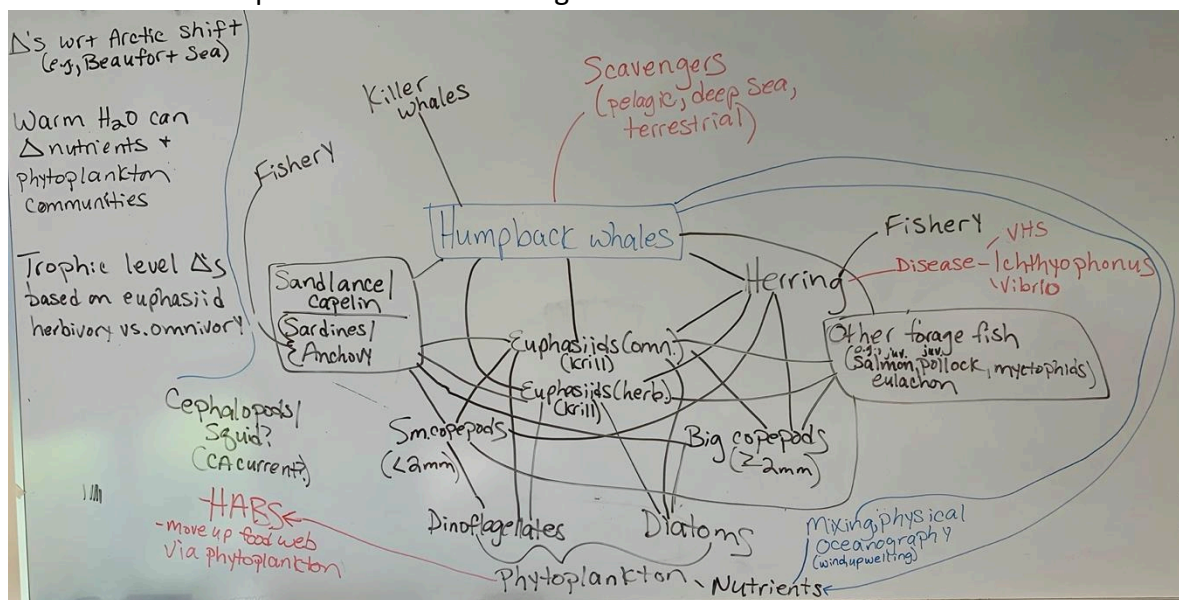 Δ's wrt Arctic shift
(e.g., Beaufort Sea)
Warm H₂O can
Δ nutrients +
phytoplankton
communities
Trophic level Δs
based on euphasiid
herbivory vs. omnivory
Killer
whales
Scavengers
(pelagic, deep sea,
terrestrial)
Fishery
Humpback whales
Fishery
VHS
Disease - Ichthyophonus
Vibrio
Herring
Sandlance/
capelin
Sardines/
Anchovy
Euphasiids (omn.)
(krill)
Euphasiids (herb.)
(krill)
Other forage fish
(e.g., juv. juv.
salmon, pollock, myctophids)
eulachon
Cephalopods/
Squid?
(CA current?)
Sm. copepods
(<2mm)
Big copepods
(≥2mm)
HABS
- move up food web
via phytoplankton
Dinoflagellates
Diatoms
Mixing, physical
oceanography
(wind, upwelling)
Phytoplankton
Nutrients